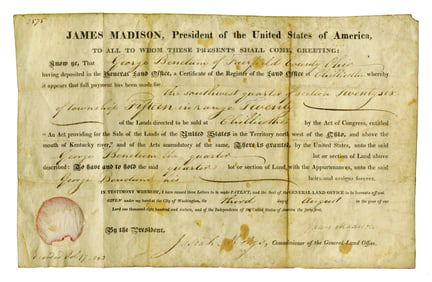 JAMES MADISON, President of the United States of America,
TO ALL TO WHOM THESE PRESENTS SHALL COME, GREETING:
Know ye, That George Benelum of Fairfield County Ohio
having deposited in the General Land Office, a Certificate of the Register of the Land Office at Chillicothe whereby
it appears that full payment has been made for the Southwest quarter of Section Twenty six
of township Fifteen in range Twenty
of the Lands directed to be sold at Chillicothe by the Act of Congress, entitled
"An Act providing for the Sale of the Lands of the United States in the Territory north west of the Ohio, and above the
mouth of Kentucky river," and of the Acts amendatory of the same, There is granted, by the United States, unto the said
George Benelum the quarter lot or section of Land above
described: To have and to hold the said quarter lot or section of Land, with the Appurtenances, unto the said
George Benelum his heirs and assigns forever.
IN TESTIMONY WHEREOF, I have caused these Letters to be made PATENT, and the Seal of the GENERAL LAND OFFICE to be hereunto affixed
GIVEN under my hand at the City of Washington, the third day of August in the year of our
Lord one thousand eight hundred and and of the Independence of the United States of America the
By the President,
James Madison
Commissioner of the General Land Office.